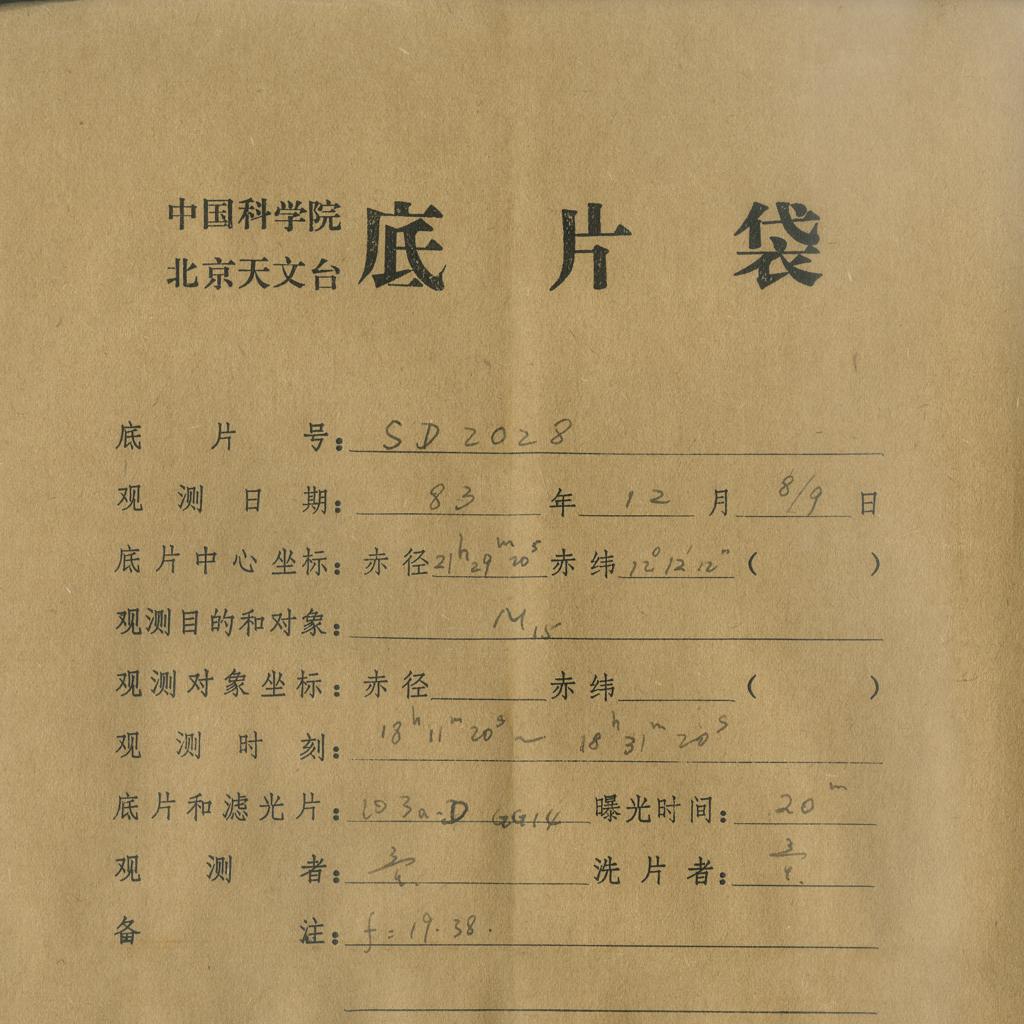 中国科学院
北京天文台
底片袋
底片号：SD2028
观测日期：83年12月8/9日
底片中心坐标：赤径21h29m20s赤纬12°12′12″（　）
观测目的和对象：M15
观测对象坐标：赤径　赤纬　（　）
观测时刻：18h11m20s～18h31m20s
底片和滤光片：103a-D GG14 曝光时间：20m
观测者：　洗片者：
备注：f=19.38.